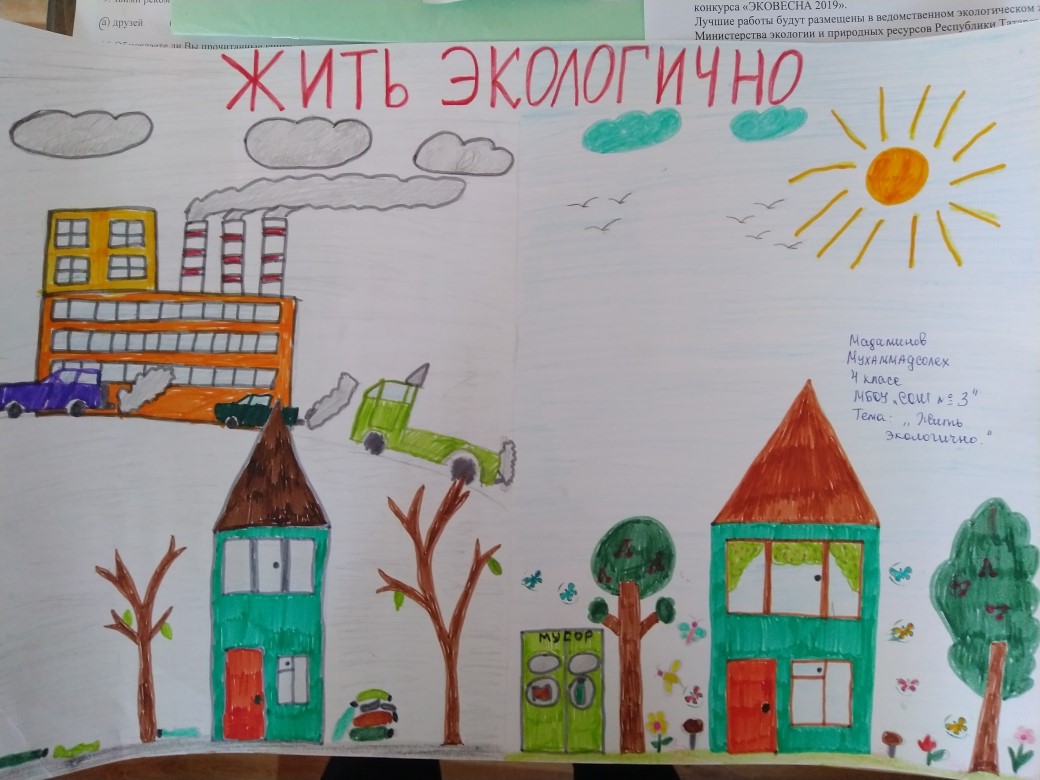 конкурса «ЭКОВЕСНА 2019».
Лучшие работы будут размещены в ведомственном экологическом
Министерства экологии и природных ресурсов Республики
а) друзей
ЖИТЬ ЭКОЛОГИЧНО
Мадаминов
Мухаммадсолех
4 класс
МБОУ „СОШ №3"
Тема: „Жить
Экологично."
МУСОР